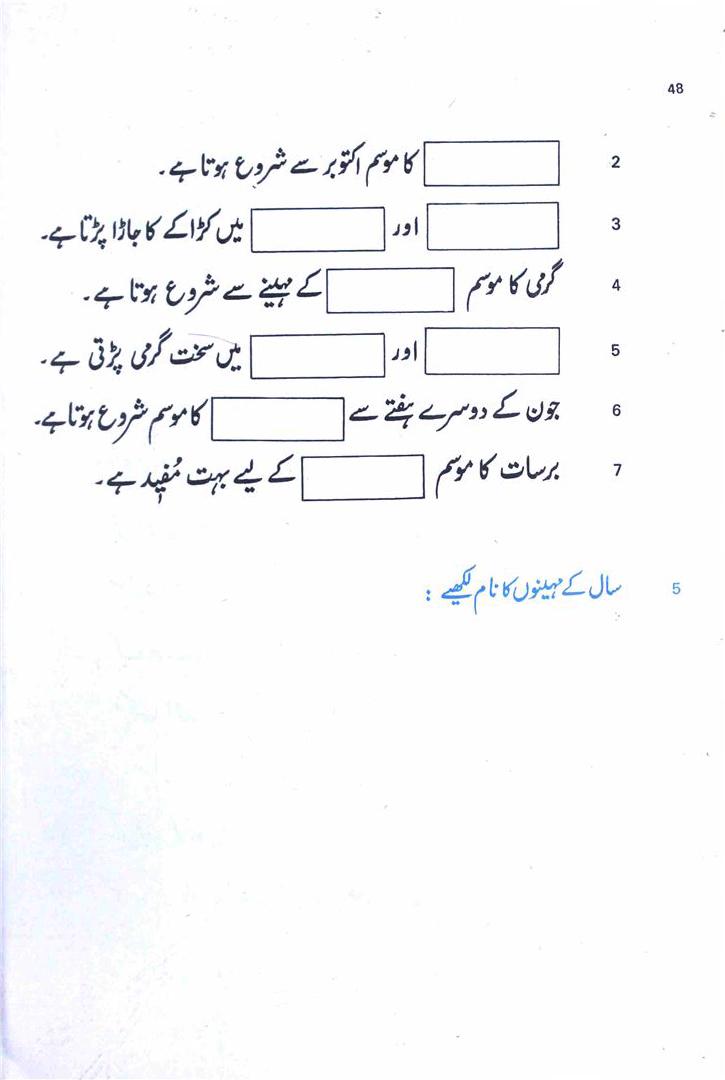 48
2 کا موسم اکتوبر سے شروع ہوتا ہے۔
3 اور میں کڑاکے کا جاڑا پڑتا ہے۔
4 گرمی کا موسم کے مہینے سے شروع ہوتا ہے۔
5 اور میں سخت گرمی پڑتی ہے۔
6 جون کے دوسرے ہفتے سے کا موسم شروع ہوتا ہے۔
7 برسات کا موسم کے لیے بہت مُفید ہے۔
5 سال کے مہینوں کا نام لکھیے :